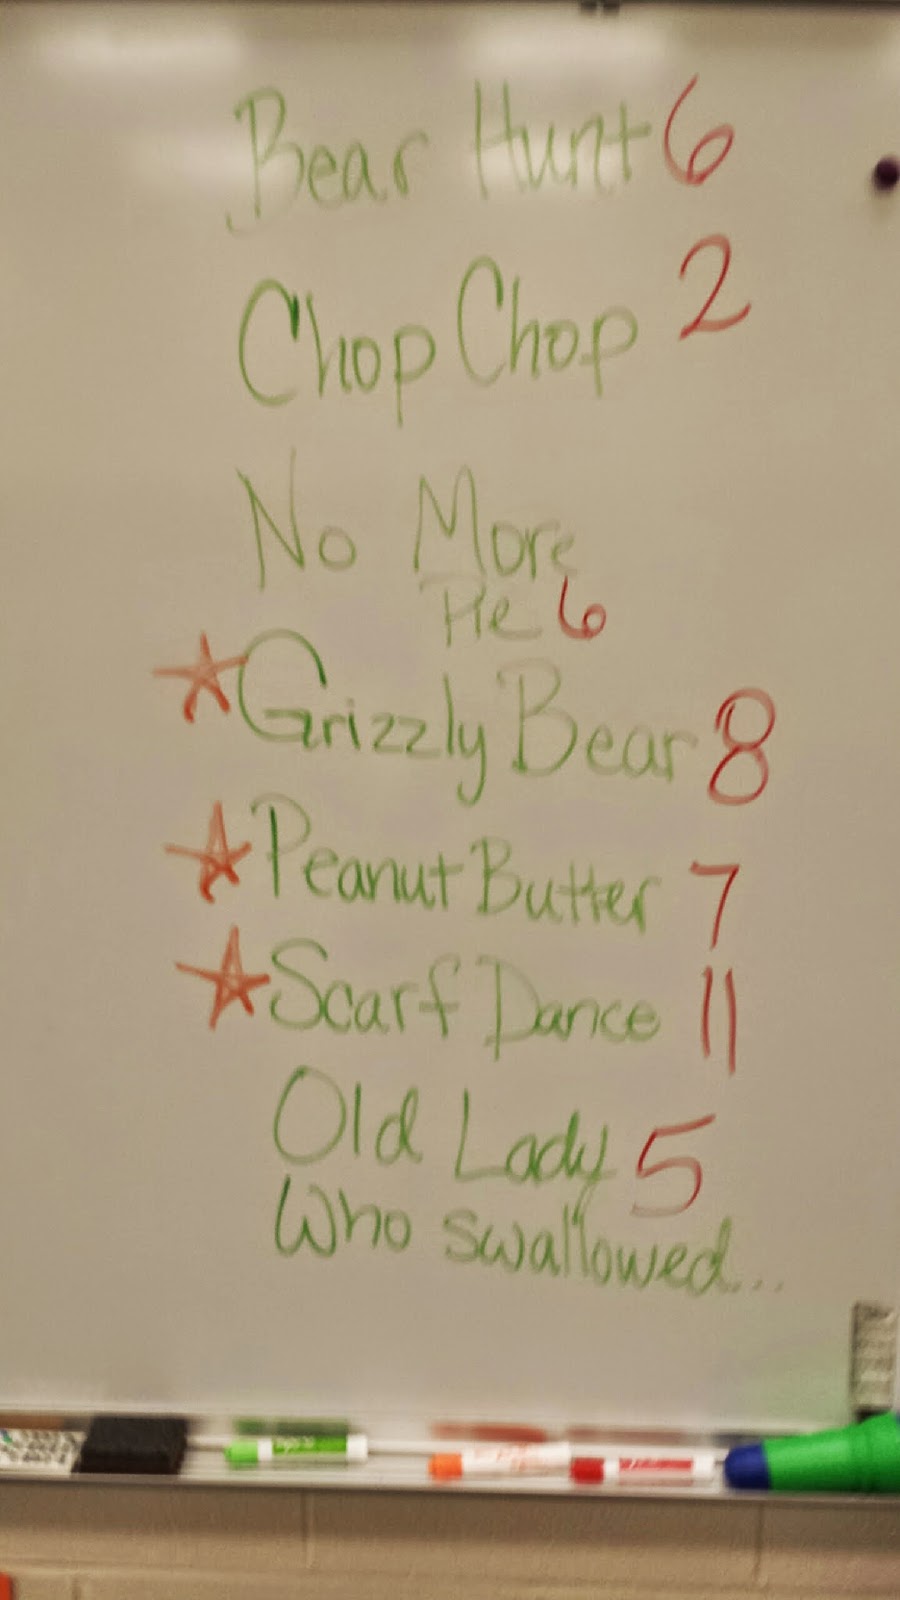 Bear Hunt 6
Chop Chop 2
No More
Pie 6
Grizzly Bear 8
Peanut Butter 7
Scarf Dance 11
Old Lady 5
Who swallowed...